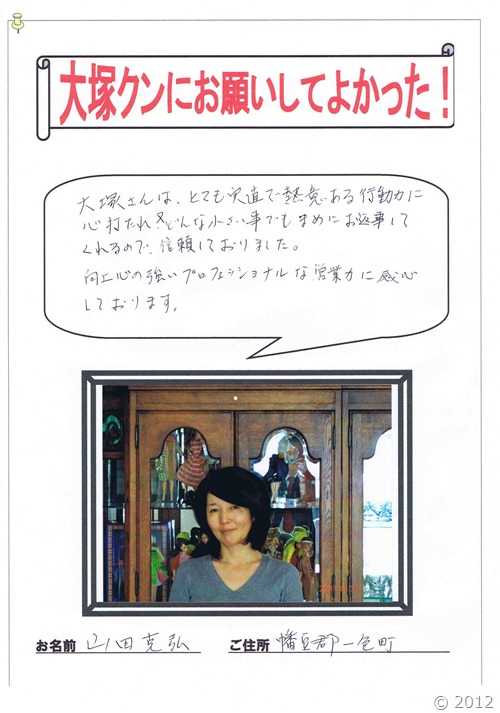 大塚クンにお願いしてよかった!
大塚さんは、とても実直で熱意ある行動力に
心打たれ、どんな小さい事でもまめにお返事して
くれるので、信頼しておりました。
向上心の強いプロフェッショナルな営業力に感心
しております。
お名前 山田克弘 ご住所 幡豆郡一色町
© 2012